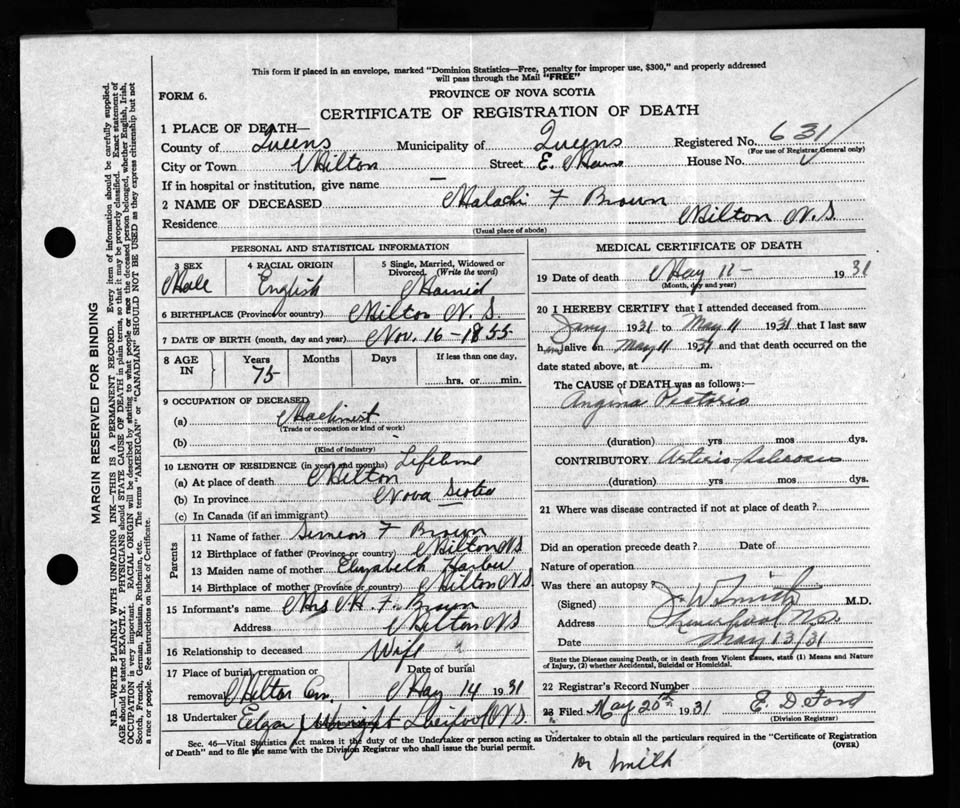 This form if placed in an envelope, marked "Dominion Statistics—Free, penalty for improper use, $300," and properly addressed
will pass through the Mail "FREE"
FORM 6.
PROVINCE OF NOVA SCOTIA
CERTIFICATE OF REGISTRATION OF DEATH
1 PLACE OF DEATH—
County of Queens Municipality of Queens Registered No. 631
(For use of Registrar General only)
City or Town Milton Street E. Main House No.
If in hospital or institution, give name —
2 NAME OF DECEASED Malachi F Brown
Residence Milton N.S.
(Usual place of abode)
PERSONAL AND STATISTICAL INFORMATION
3 SEX 4 RACIAL ORIGIN 5 Single, Married, Widowed or
Divorced. (Write the word)
Male English Married
6 BIRTHPLACE (Province or country) Milton N. S.
7 DATE OF BIRTH (month, day and year) Nov. 16 - 1855
8 AGE IN Years Months Days If less than one day,
75 hrs. or min.
9 OCCUPATION OF DECEASED
(a) Machinist
(Trade or occupation or kind of work)
(b)
(Kind of industry)
10 LENGTH OF RESIDENCE (in years and months) Lifetime
(a) At place of death Milton
(b) In province Nova Scotia
(c) In Canada (if an immigrant)
Parents
11 Name of father Simeon F Brown
12 Birthplace of father (Province or country) Milton NS
13 Maiden name of mother Elizabeth
14 Birthplace of mother (Province or country) Milton NS
15 Informant's name Mrs M. F. Brown
Address Milton NS
16 Relationship to deceased Wife
17 Place of burial, cremation or Date of burial
removal Milton Cem. May 14 1931
18 Undertaker Liverpool N.S.
MEDICAL CERTIFICATE OF DEATH
19 Date of death May 11 - 1931
(Month, day and year)
20 I HEREBY CERTIFY that I attended deceased from
Jany 1931 to May 11 1931 that I last saw
him alive on May 11 1931 and that death occurred on the
date stated above, at m.
The CAUSE of DEATH was as follows:
Angina Pectoris
(duration) yrs mos dys.
CONTRIBUTORY Arterio-sclerosis
(duration) yrs. mos. dys.
21 Where was disease contracted if not at place of death?
Did an operation precede death? Date of
Nature of operation
Was there an autopsy?
(Signed) J W Smith M.D.
Address Liverpool N.S.
Date May 13/31
State the Disease causing Death, or in death from Violent Causes, state (1) Means and Nature
of Injury, (2) whether Accidental, Suicidal or Homicidal.
22 Registrar's Record Number
23 Filed May 20th 1931 E. D Ford
(Division Registrar)
Sec. 46—Vital Statistics Act makes it the duty of the Undertaker or person acting as Undertaker to obtain all the particulars required in the "Certificate of Registration
of Death" and to file the same with the Division Registrar who shall issue the burial permit.
(OVER)
Dr Smith
MARGIN RESERVED FOR BINDING
N.B.—WRITE PLAINLY WITH UNFADING INK—THIS IS A PERMANENT RECORD. Every item of information should be carefully supplied.
AGE should be stated EXACTLY. PHYSICIANS should STATE CAUSE OF DEATH in plain terms, so that it may be properly classified. Exact statement of
OCCUPATION is very important. RACIAL ORIGIN will be described by stating to what people or race the deceased person belonged, whether English, Irish,
Scotch, French, German, Russian, Ruthenian, etc. The terms "AMERICAN" or "CANADIAN" SHOULD NOT BE USED as they express citizenship but not
a race or people. See instructions on back of Certificate.